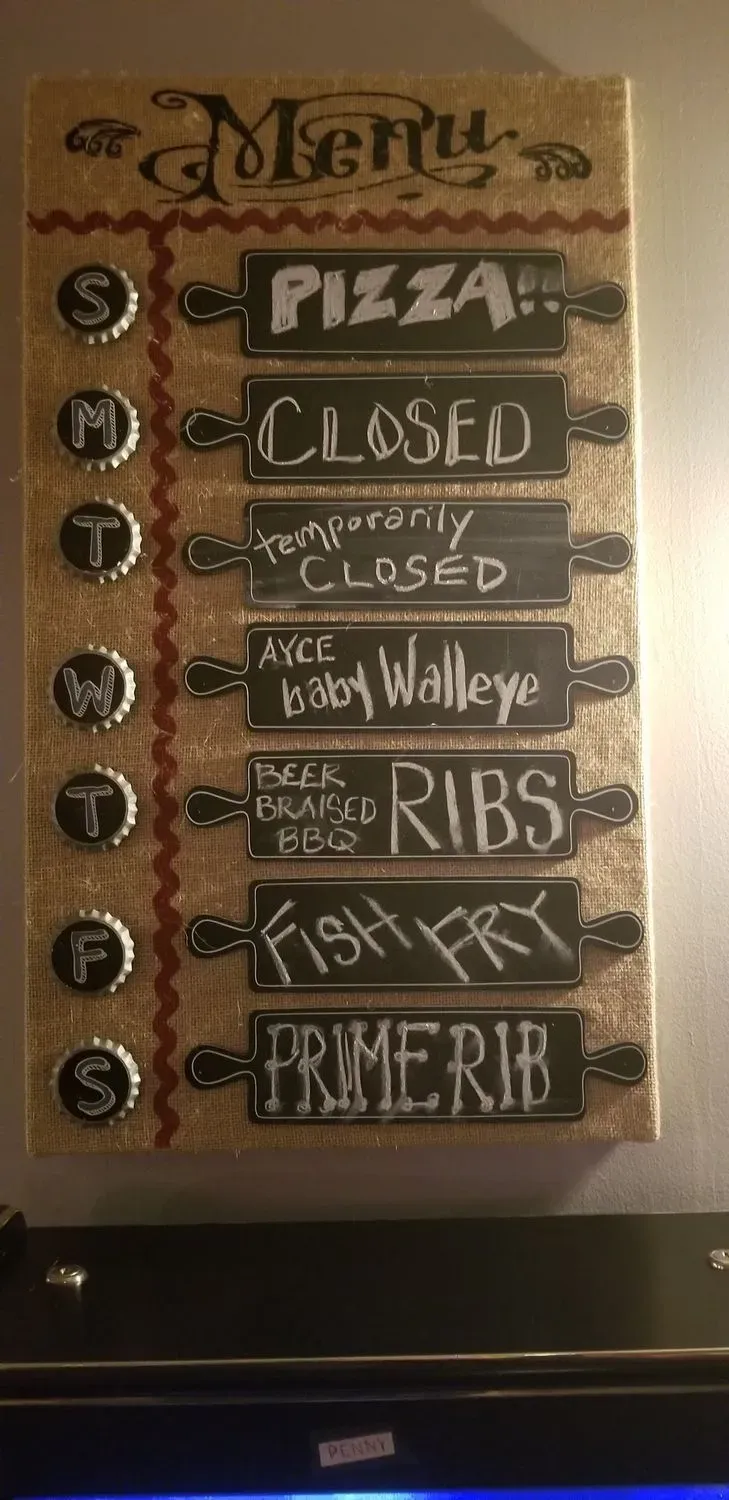 Menu
S
PIZZA!!
M
CLOSED
T
temporarily
CLOSED
W
AYCE
baby Walleye
T
BEER
BRAISED
BBQ
RIBS
F
FISH FRY
S
PRIME RIB
PENNY